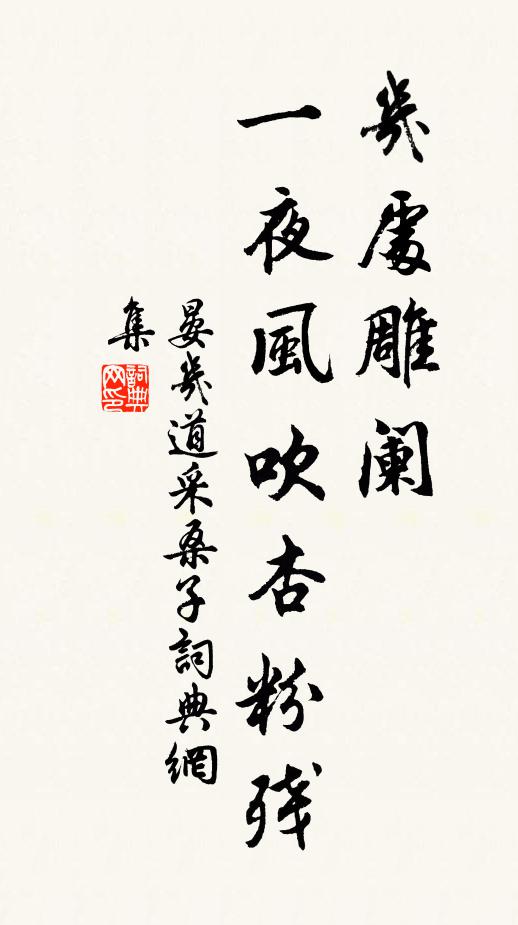 幾處雕闌
一夜風吹杏粉殘
晏幾道采桑子詞典網
集
詞典
网印